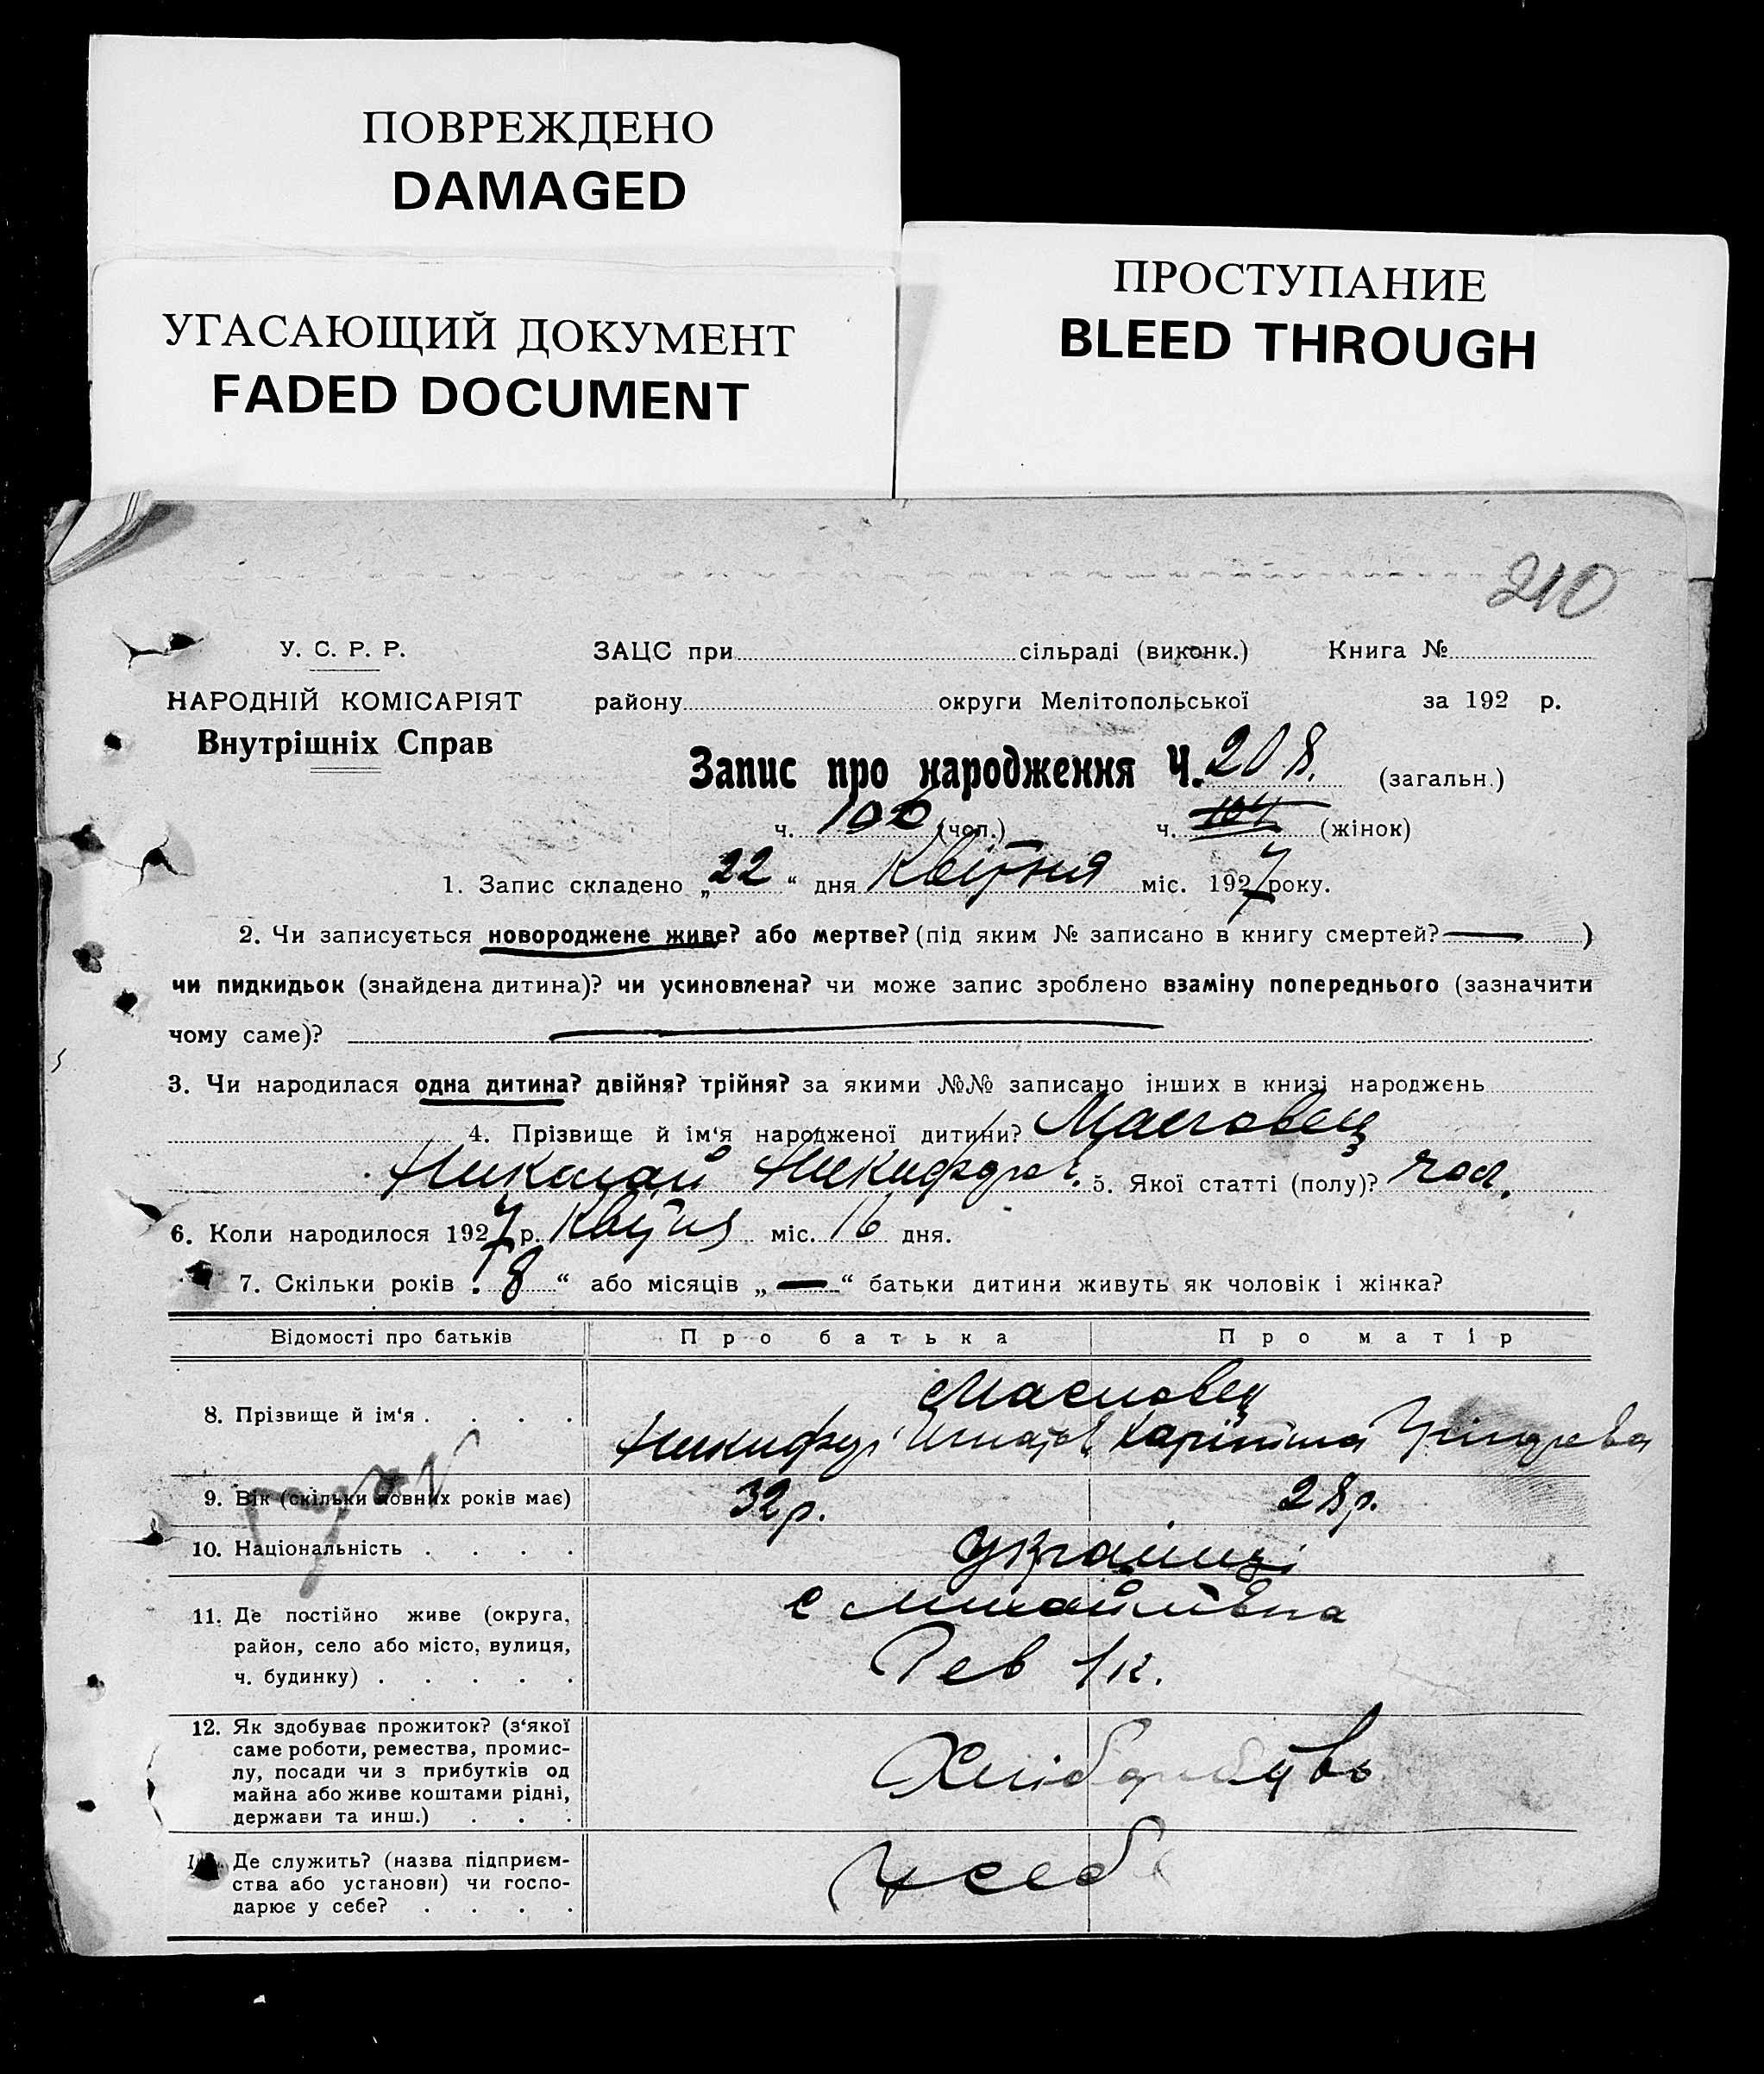 ПОВРЕЖДЕНО
DAMAGED
УГАСАЮЩИЙ ДОКУМЕНТ
FADED DOCUMENT
ПРОСТУПАНИЕ
BLEED THROUGH
210
У. С. Р. Р.
ЗАЦС при сільраді (виконк.) Книга №
НАРОДНІЙ КОМІСАРІЯТ
району округи Мелітопольської за 192 р.
Внутрішніх Справ
Запис про народження Ч. 208. (загальн.)
ч. 106 (чол.) ч. 104 (жінок)
1. Запис складено „22“ дня Квітня міс. 1927 року.
2. Чи записується новороджене живе? або мертве? (під яким № записано в книгу смертей? — )
чи пидкидьок (знайдена дитина)? чи усиновлена? чи може запис зроблено взаміну попереднього (зазначити
чому саме)? —
3. Чи народилася одна дитина? двійня? трійня? за якими №№ записано інших в книзі народжень
4. Прізвище й ім‘я народженої дитини? Масловец
Николай Никифоров. 5. Якої статті (полу)? чол.
6. Коли народилося 1927 р. Квітня міс. 16 дня.
7. Скільки років „8“ або місяців „—“ батьки дитини живуть як чоловік і жінка?
Відомості про батьків Про батька Про матір
8. Прізвище й ім‘я . . . .
Масловец
Никифор Игнатов
9. Вік (скільки повних років має) 32 р. 28 р.
10. Національність . . . . українці
11. Де постійно живе (округа,
район, село або місто, вулиця,
ч. будинку) . . . . .
с Михайлівка
Рев 1 к.
12. Як здобуває прожиток? (з‘якої
саме роботи, ремества, промис-
лу, посади чи з прибутків од
майна або живе коштами рідні,
держави та инш.) . . .
Хліборобство
Де служить? (назва підприєм-
ства або установи) чи госпо-
дарює у себе? . . . .
У себе